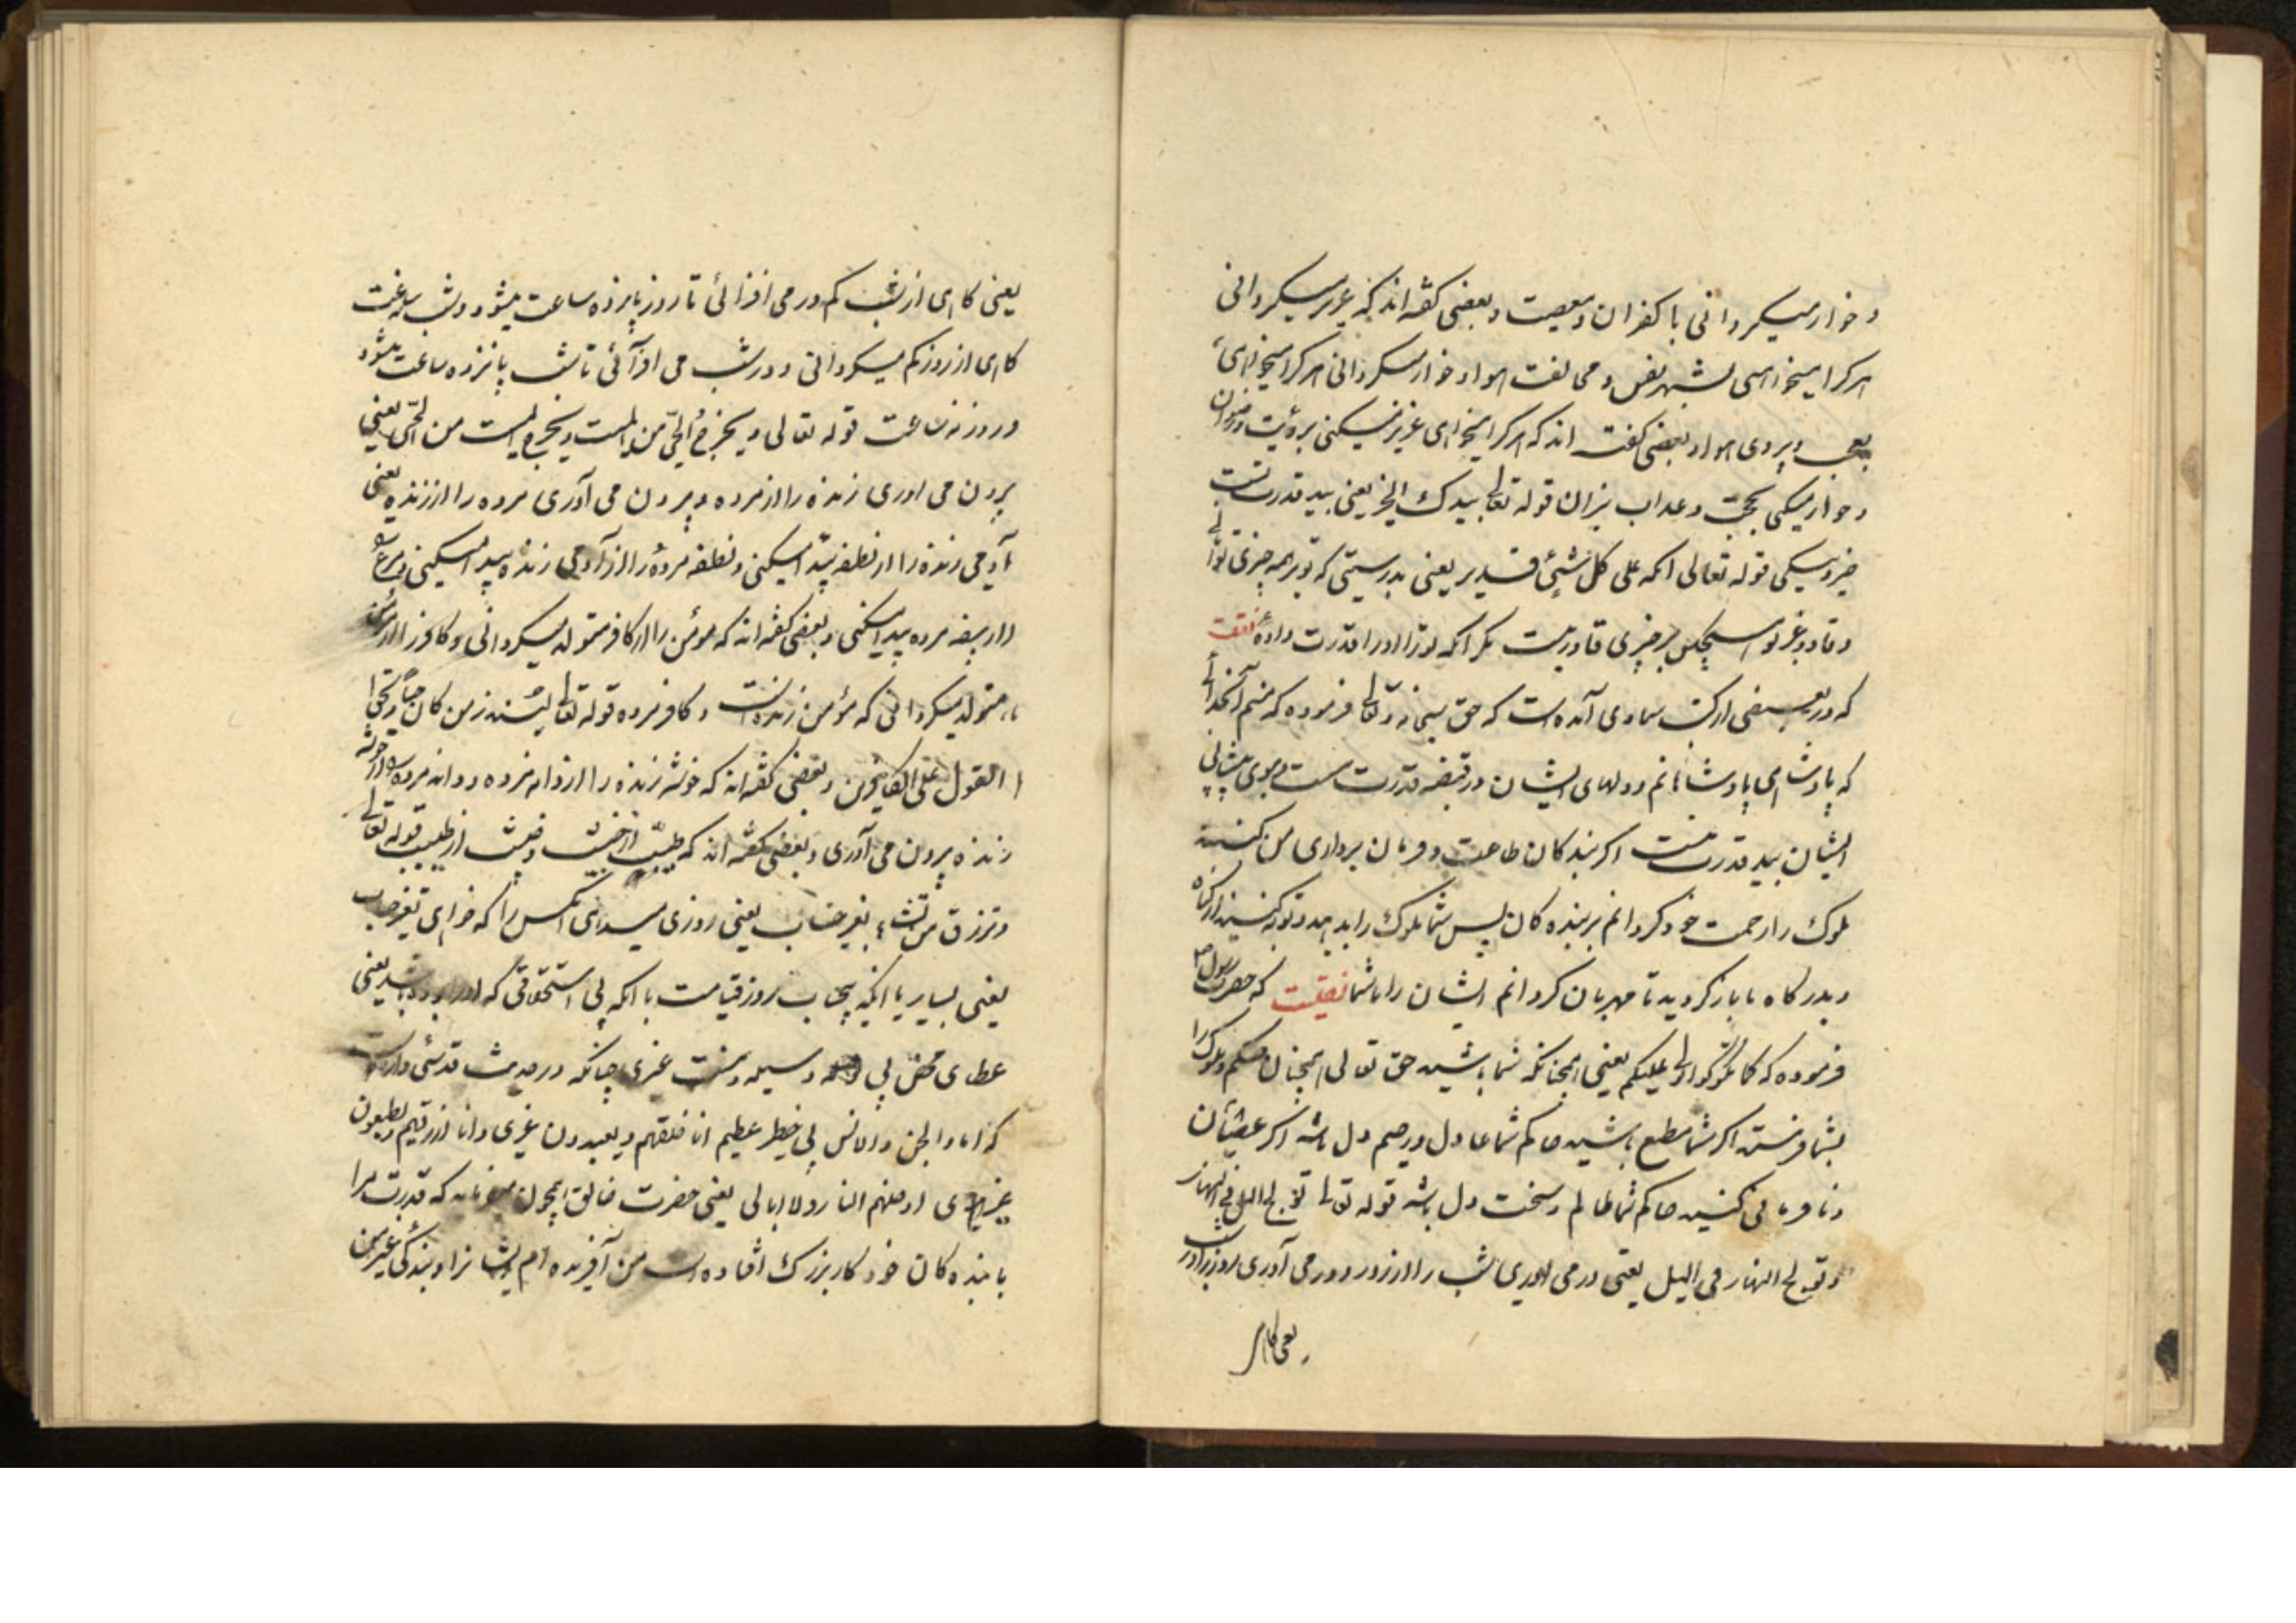 و خوار میکردانی با کفران و معصیت و بعضی کفته اند که عزیز میکردانی
هرکرا میخواهی بقهر نفس و مخالفت هوا و خوار میکردانی هرکرا میخواهی
و پیروی هوا و بعضی کفته اند که هرکرا میخواهی عزیز میکنی برؤیت و رضوان
و خوار میکنی بحجت و عذاب نیران قوله تعالی بیدک الخیر یعنی بید قدرت تست
خیر قوله تعالی انک علی کل شیئ قدیر یعنی بدرستی که تو بر همه چیزی توانا
و قادر و غیر تو هیچکس بر چیزی قادر نیست مکر آنکه تو او را قدرت داده نقلست
که در بعضی از کتب سماوی آمده است که حق سبحانه و تعالی فرموده که منم آنخدائی
که پادشاهی پادشاهانم و دلهای ایشان در قبضه قدرت منست و موی پیشانی
ایشان بید قدرت منست اکر بندکان طاعت و فرمان برداری من کنند
ملوک را رحمت خود کردانم بر بنده کان پس شما ملوک را بد مکوئید و توبه کنید از کناه
و بدرکاه ما باز کردید تا مهربان کردانم ایشان را با شما نقلست که حضرت رسول ص
فرموده که کما تکونوا یولی علیکم یعنی همچنانکه شما باشید حق تعالی همچنان حکم و ملوک را
بشما فرستد اکر شما مطیع باشید حاکم شما عادل و رحیم دل باشد اکر عصیان
و نافرمانی کنید حاکم شما ظالم و سخت دل باشد قوله تعالی تولج اللیل فی النهار
و تولج النهار فی اللیل یعنی در می اوری شب را از روز و در می آوری روز را در شب
یعنی کاهی
یعنی کاهی از شب کم و در می افزائی تا روز پانزده ساعت میشود و شب نه ساعت
کاهی از روز کم میکردانی و در شب می افزآئی تا شب پانزده ساعت میشود
و روز نه ساعت قوله تعالی و یخرج الحیّ من المیت و یخرج المیت من الحیّ یعنی
برون می اوری زنده را از مرده و برون می آوری مرده را از زنده یعنی
آدمی زنده را از نطفه پیدا میکنی و نطفه مرده را از آدمی زنده پیدا میکنی و مرغ
را از بیضه مرده پیدا میکنی و بعضی کفته اند که مؤمن را از کافر متولد میکردانی و کافر را از مؤمن
متولد میکردانی که مؤمن زنده است و کافر مرده قوله تعالی لینذر من کان حیّاً و یحق
القول علی الکافرین و بعضی کفته اند که خوشه زنده را از دانه مرده و دانه مرده از خوشه
زنده برون می آوری و بعضی کفته اند که طیّب از خبیث و خبیث از طیب قوله تعالی
و ترزق من تشاء بغیر حساب یعنی روزی میدهی آنکس را که خواهی بغیر حساب
یعنی بسیار یا آنکه بیحساب بروز قیامت با آنکه بی استحقاقی که او را بوده باشد یعنی
عطای محض بی وسیله و منت غیری چنانکه در حدیث قدسی وارد است
که انا و الجن و الانس لفی خطر عظیم انا خلقتهم و یعبدون غیری و انا ارزقهم و یطیعون
غیری ادخلهم النار و لا ابالی یعنی حضرت خالق بیچون میفرماید که قدرت مرا
با بنده کان خود کار بزرک افتاده است من آفریده ام ایشانرا و بندکی غیر من